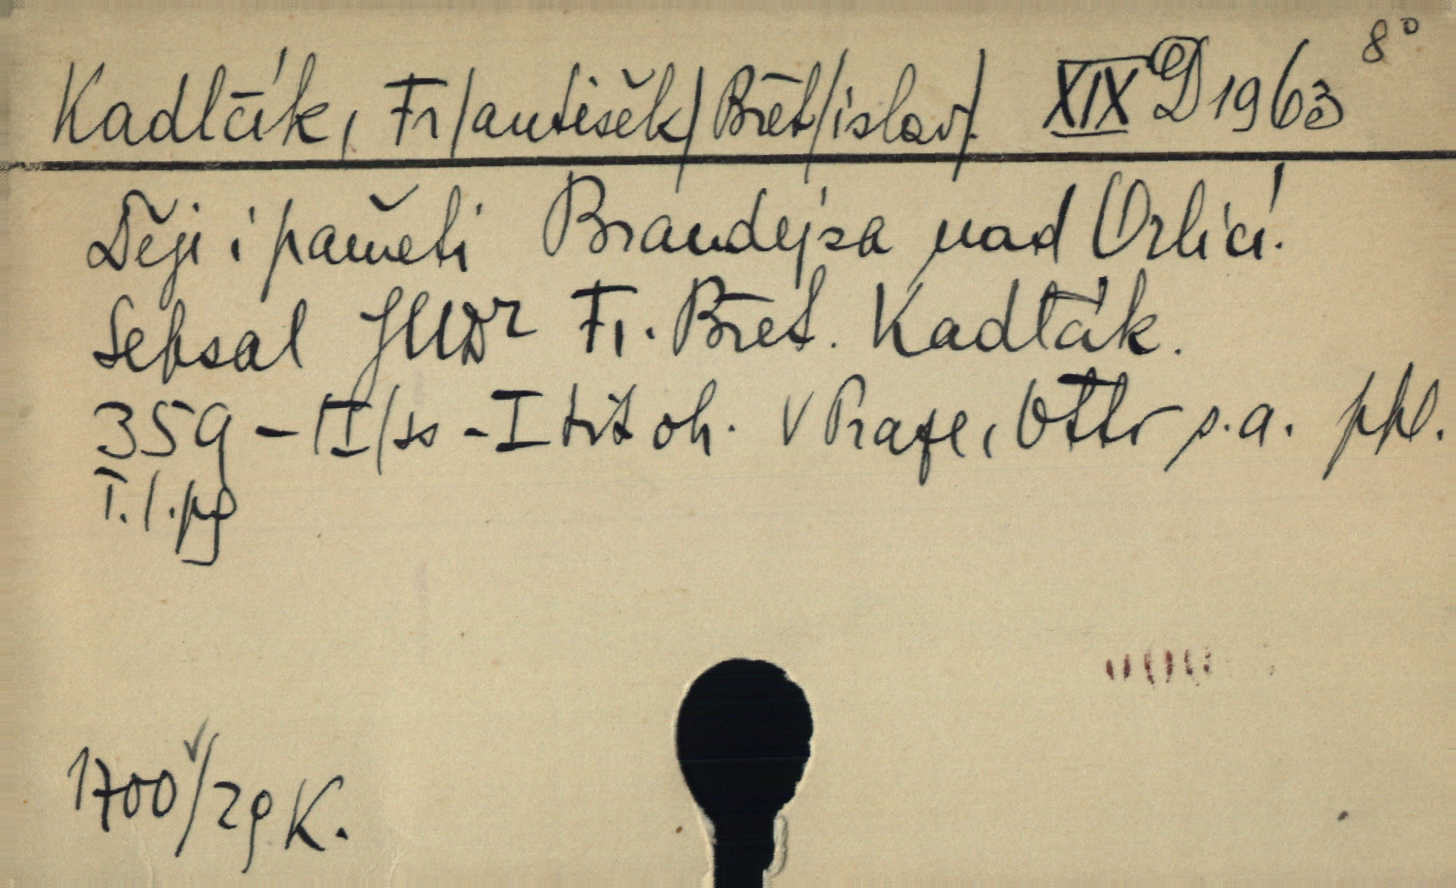 Kadlčík, Fr/antišek/ Břet/islav/. XIX D 1963 8°
Děje i paměti Brandejsa nad Orlicí.
Sebsal JUDr Fr. Břet. Kadlčák.
359 - II/ss - I tit ob. V Praze, Otto s.a. ppl.
I.l.pg
1700/29 K.